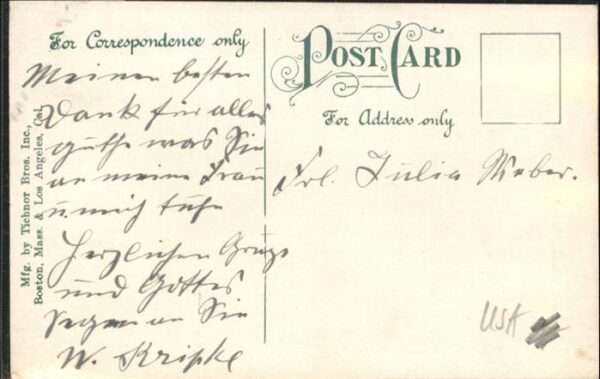 For Correspondence only
Meinen besten
Dank für alles
guthe was Sie
an meine Frau
u. mich tuhn
Herzlichen Gruss
und Gottes
Segen an Sie
W. Kripke
Mfg. by Tichnor Bros. Inc.,
Boston, Mass. & Los Angeles, Cal.
POST CARD
For Address only
Frl. Julia Weber.
USA